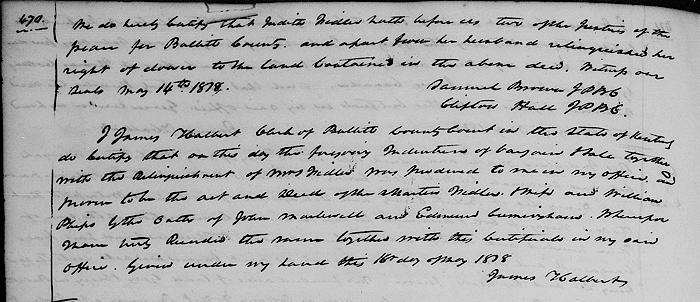 470.
We do hereby Certify that Judith Kidler hath before us two of the Justices of the
peace for Bullitt County. and apart from her husband relinquished her
right of dower to the land Contained in the above deed. Witness our
Seals May 14th 1838.
Samuel Brown JPBC
Clifton Hall JPBC.
I James Halbert Clerk of Bullitt County Court in the State of
do Certify that on this day the foregoing Indenture of bargain & Sale together
with the Relinquishment of Mrs was produced to me in my office, and
proven to be the act and Deed of the and William
Phips by the Oaths of John and Edmund Whereupon
I have truly Recorded the same together with this Certificate in my said
office. Given under my hand this 16th day of May 1838
James Halbert